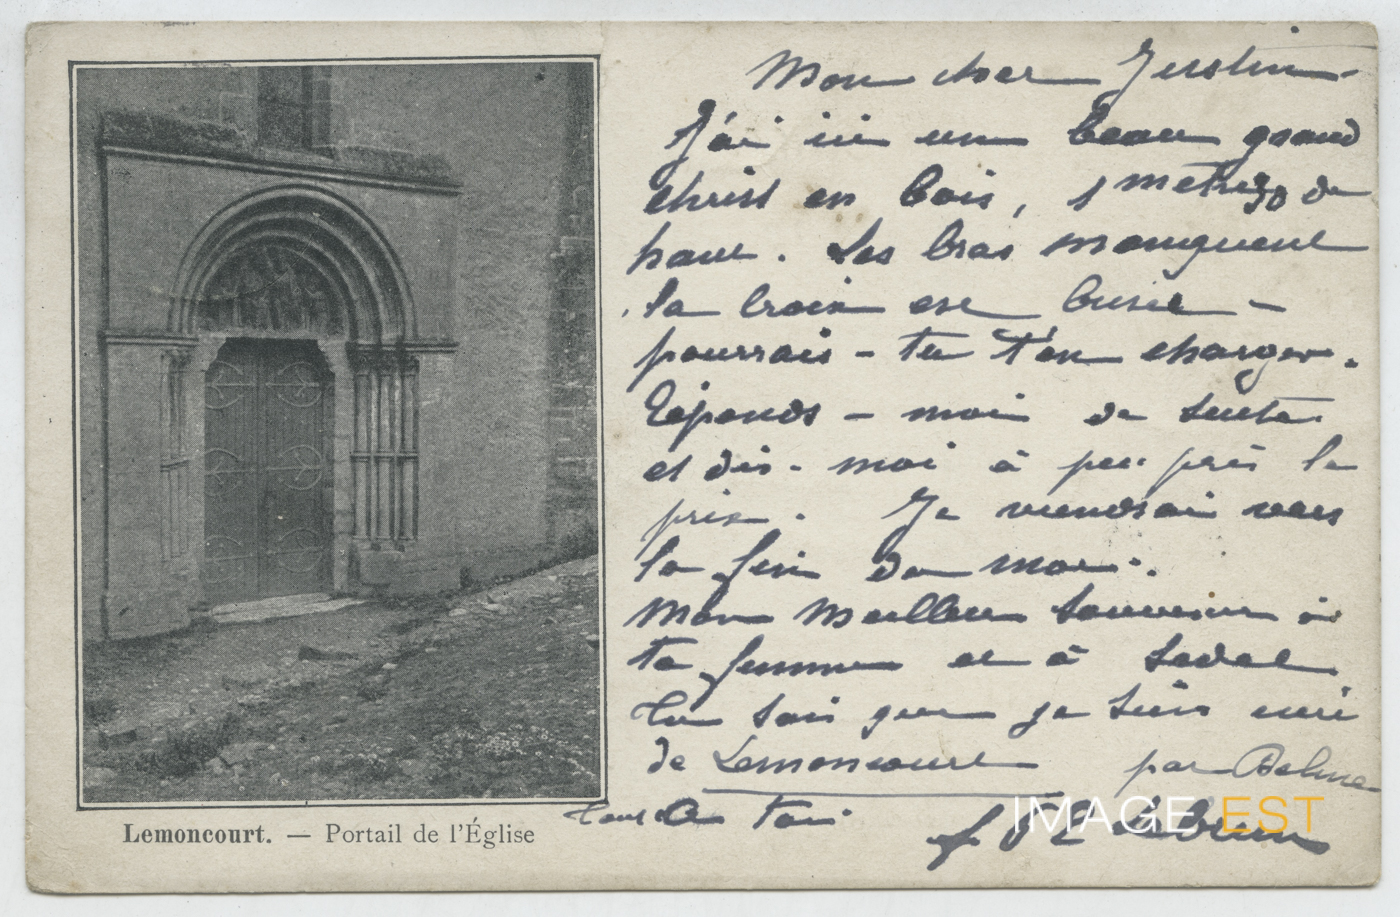 Mon cher Justin
J'ai ici un beau grand
christ en bois, 1 metre 30 de
haut. Les bras manquent
la croix est brisée -
pourrais-tu t'en charger.
Réponds-moi de suite
et dis-moi à peu près le
prix. Je viendrai vers
la fin du mois.
Mon meilleur souvenir à
ta femme et à
Tu sais que je suis curé
de Lemoncourt par Delme
Tout à toi
Lemoncourt. — Portail de l'Église
IMAGE'EST